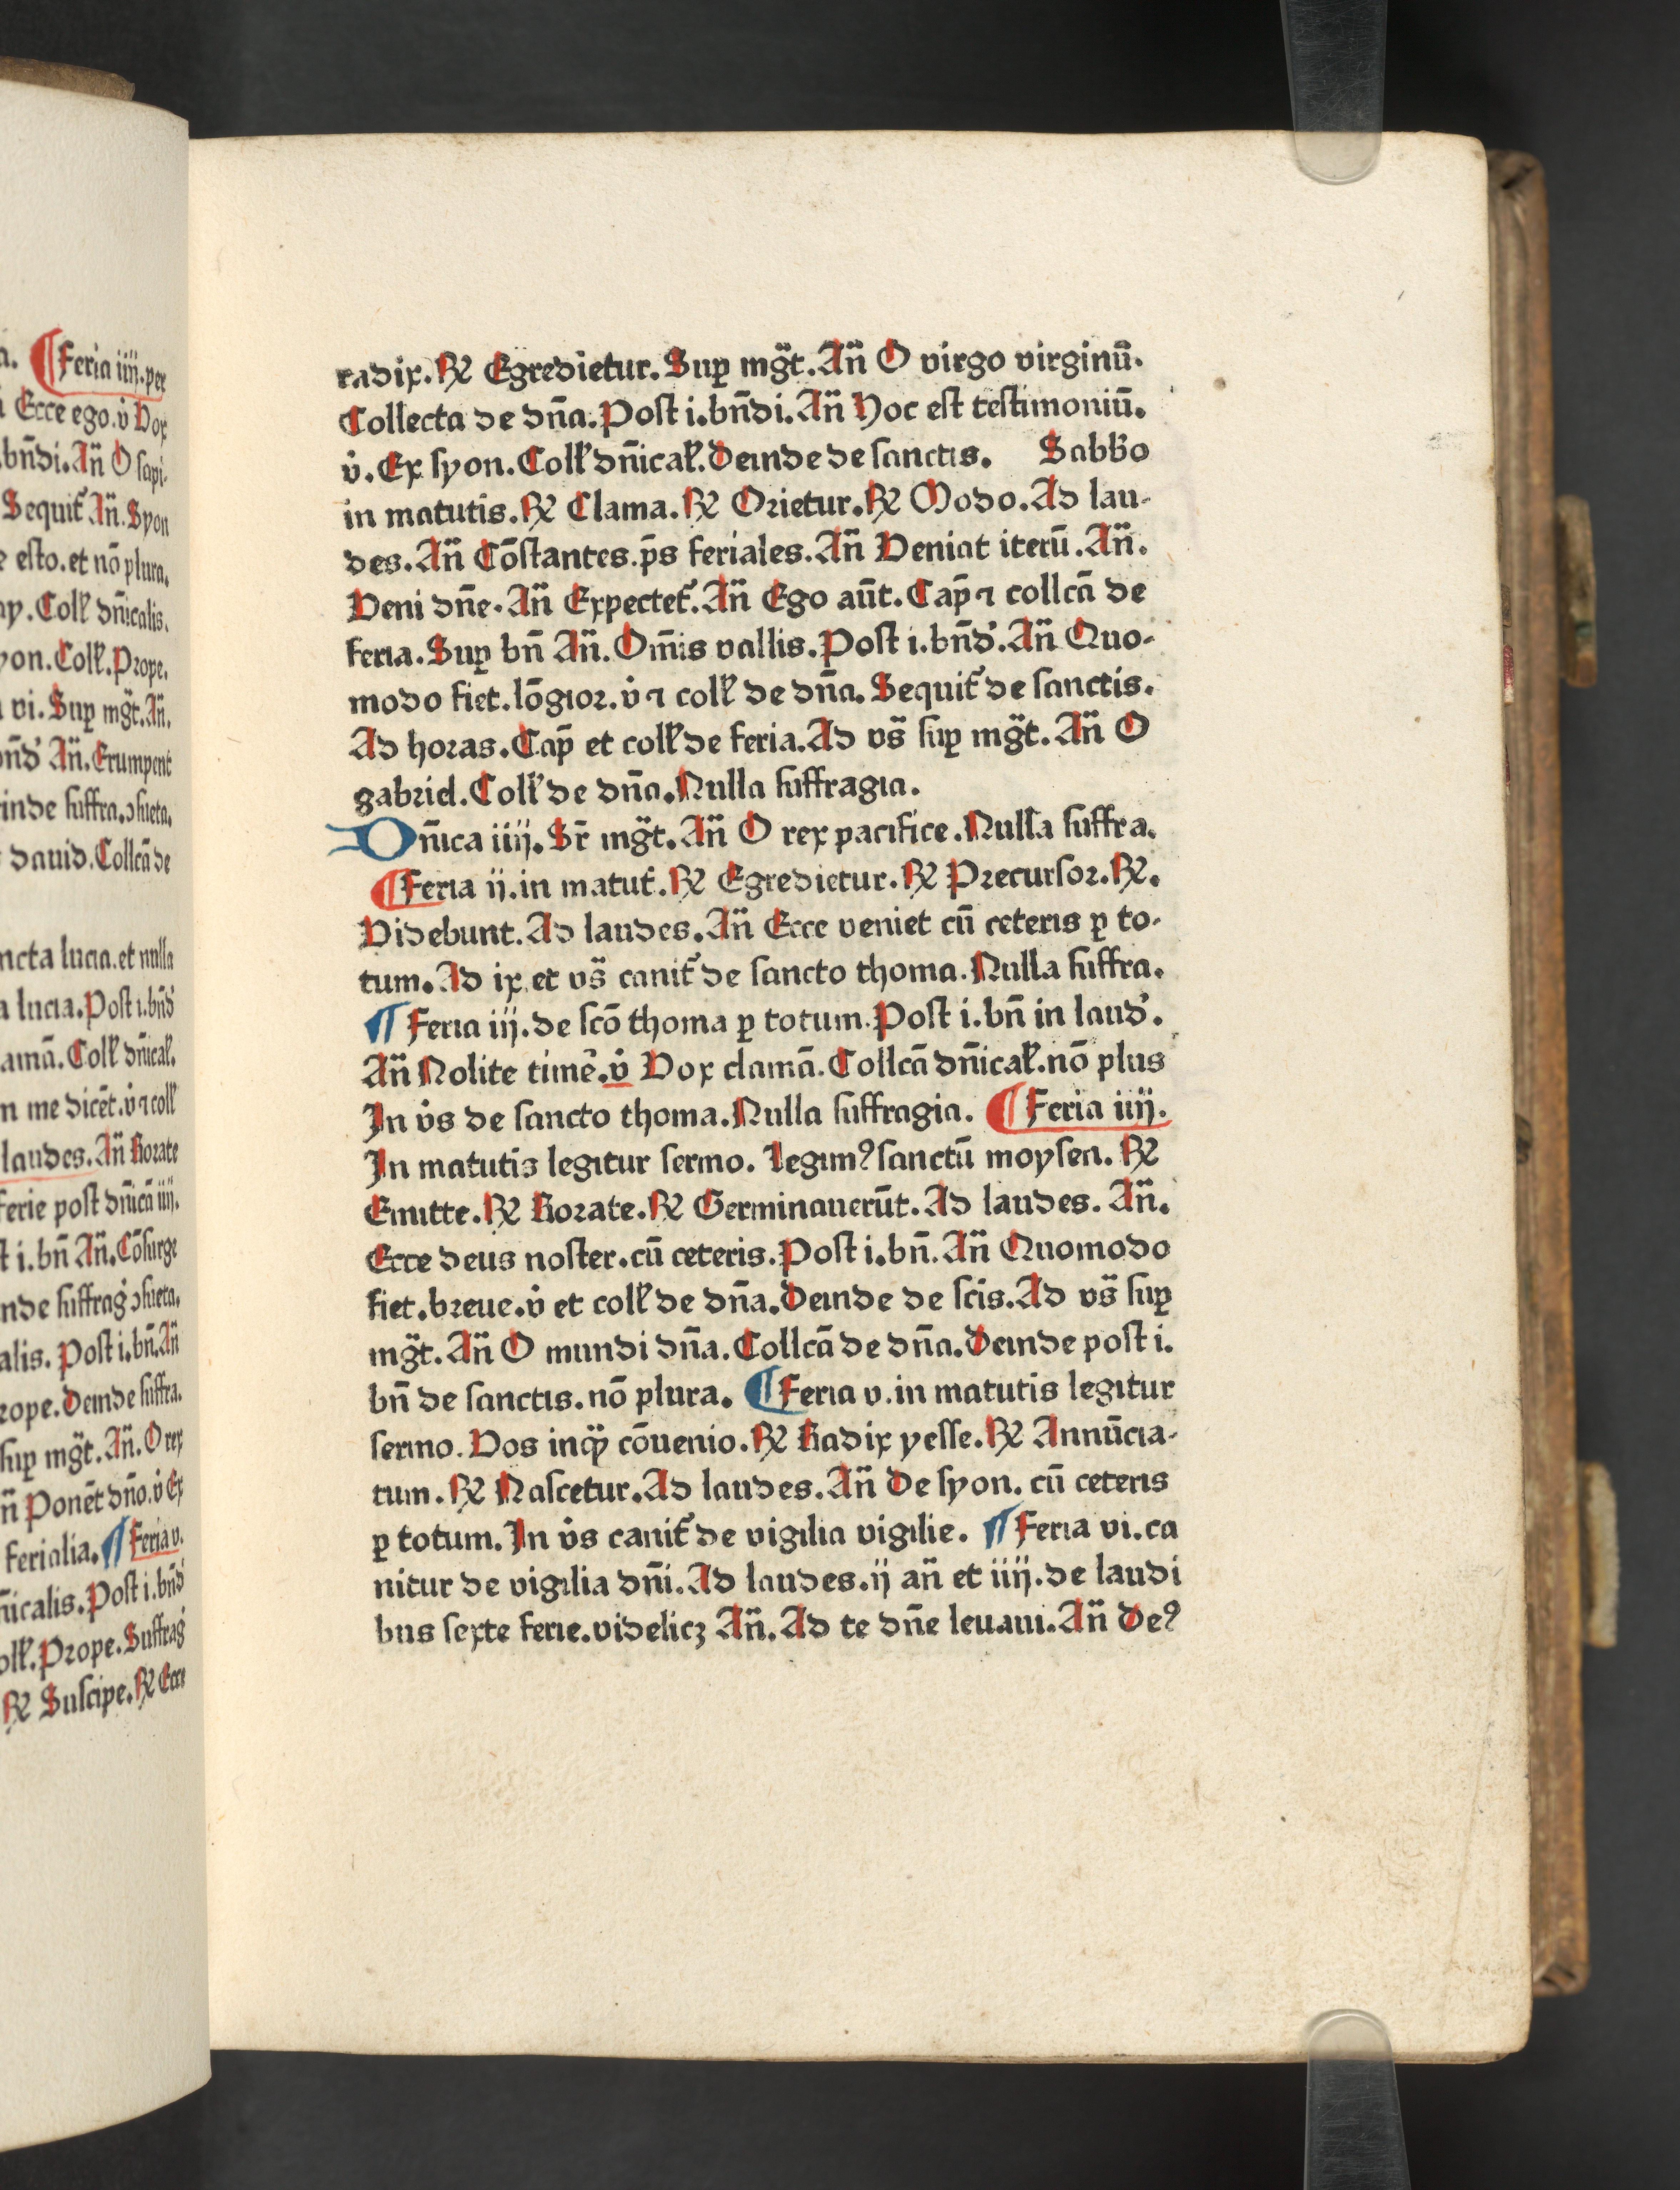 a. ¶ Feria iiij. per
Ecce ego. v̇ Vox
bn̄di. An̄ O sapi-
Sequit᷑ An̄. Syon
esto. et nō plura.
ay. Coll̕ dn̄icalis.
yon. Coll̕. Prope.
vi. Sup̱ mg̈t. An̄.
bn̄d̕ An̄. Erumpent
inde suffra. ↄsueta.
dauid. Collcā de
ncta lucia. et nulla
a lucia. Post i. bn̄d̕
amā. Coll̕ dn̄ical̕.
m me dicēt. v̇ ⁊ coll̕
laudes. An̄ Rorate
ferie post dn̄icā iiij.
t i. bn̄ An̄. Cōsurge
nde suffrag̕ ↄsueta.
alis. Post i. bn̄. An̄
rope. Deinde suffra.
sup̱ mg̈t. An̄. O rex
n̄ Ponēt dn̄o. v̇ Ex
ferialia. ¶ Feria v.
n̄icalis. Post i. bn̄d̕
oll̕. Prope. Suffrag̕
℟ Suscipe. ℟ Ecce
radix. ℟ Egredietur. Sup̱ mg̈t. An̄ O virgo virginū.
Collecta de dn̄a. Post i. bn̄di. An̄ Hoc est testimoniū.
v̇. Ex syon. Coll̕ dn̄ical̕. Deinde de sanctis. Sabb̕o
in matutis. ℟ Clama. ℟ Orietur. ℟ Modo. Ad lau-
des. An̄ Cōstantes. p̄s feriales. An̄ Veniat iterū. An̄.
Veni dn̄e. An̄ Expectet᷑. An̄ Ego aūt. Cap̄ ⁊ collcā de
feria. Sup̱ bn̄ An̄. Om̄is vallis. Post i. bn̄d̕. An̄ Quo-
modo fiet. lōgior. v̇ ⁊ coll̕ de dn̄a. Sequit᷑ de sanctis.
Ad horas. Cap̄ et coll̕ de feria. Ad vs̄ sup̱ mg̈t. An̄ O
gabriel. Coll̕ de dn̄a. Nulla suffragia.
Dn̄ica iiij. Sr̄ mg̈t. An̄ O rex pacifice. Nulla suffra.
¶ Feria ij. in matut᷑. ℟ Egredietur. ℟ Precursor. ℟.
Videbunt. Ad laudes. An̄ Ecce veniet cū ceteris p̱ to-
tum. Ad ix. et vs̄ canit᷑ de sancto thoma. Nulla suffra.
¶ Feria iij. de scō thoma p̱ totum. Post i. bn̄ in laud̕.
An̄ Nolite timē. v̇ Vox clamā. Collcā dn̄ical̕. nō plus
In v̇s de sancto thoma. Nulla suffragia. ¶ Feria iiij.
In matutis legitur sermo. Legimꝰ sanctū moysen. ℟
Emitte. ℟ Rorate. ℟ Germinauerūt. Ad laudes. An̄.
Ecce deus noster. cū ceteris. Post i. bn̄. An̄ Quomodo
fiet. breue. v̇ et coll̕ de dn̄a. Deinde de scīs. Ad vs̄ sup̱
mg̈t. An̄ O mundi dn̄a. Collcā de dn̄a. Deinde post i.
bn̄ de sanctis. nō plura. ¶ Feria v. in matutis legitur
sermo. Vos inqꝫ cōuenio. ℟ Radix yesse. ℟ Annūcia-
tum. ℟ Nascetur. Ad laudes. An̄ De syon. cū ceteris
p̱ totum. In v̇s canit᷑ de vigilia vigilie. ¶ Feria vi. ca
nitur de vigilia dn̄i. Ad laudes. ij an̄ et iiij. de laudi
bus sexte ferie. videlicꝫ An̄. Ad te dn̄e leuaui. An̄ Deꝰ